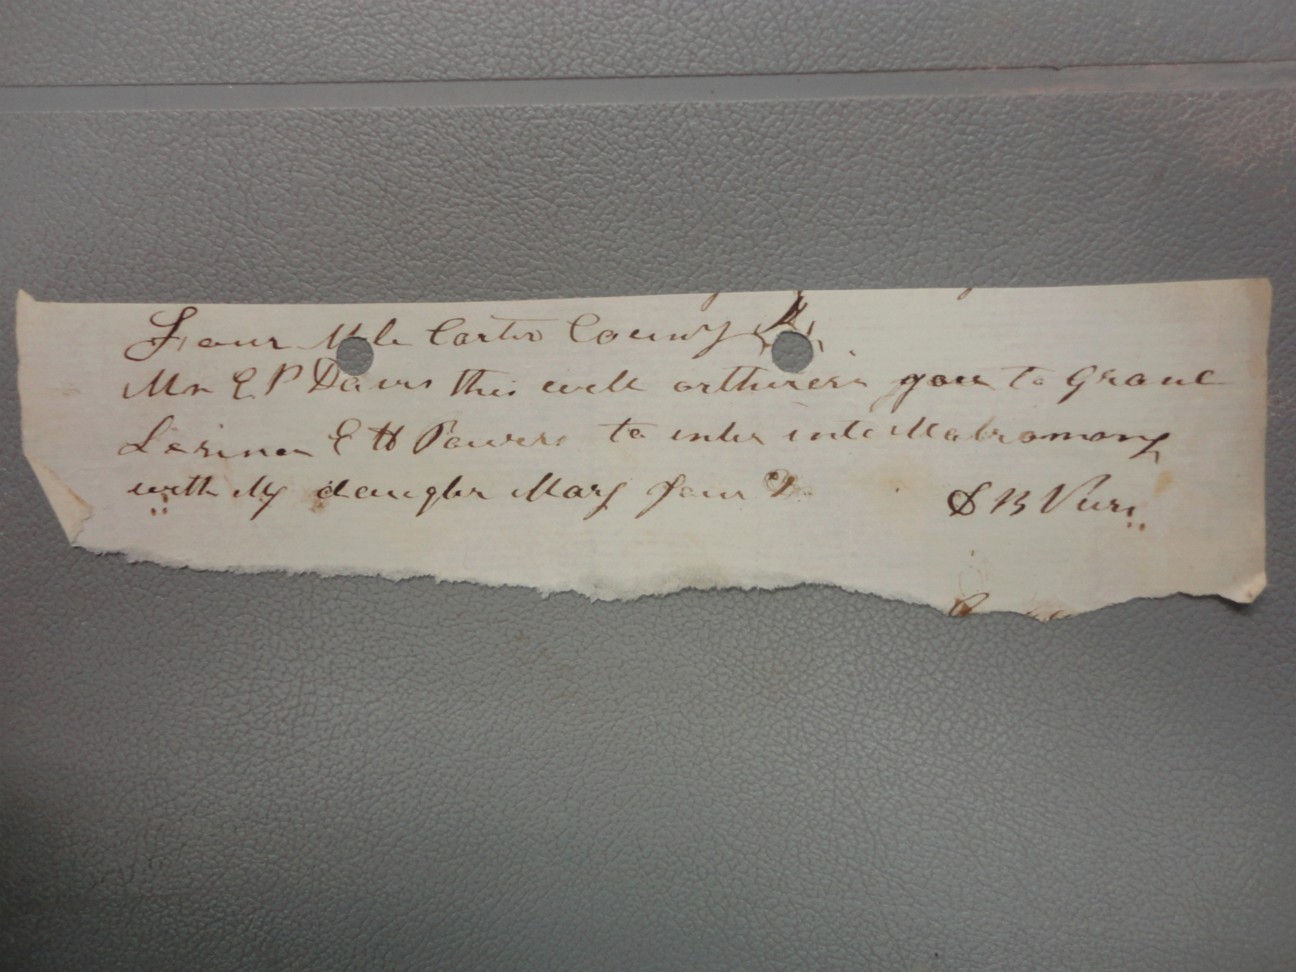 Four Mile Carter County K
Mr E P Davis this will orthurise you to Graul
Lesinse E H Powers to enter into Matromony
with My daughtr Mary Jane
S B Vurs